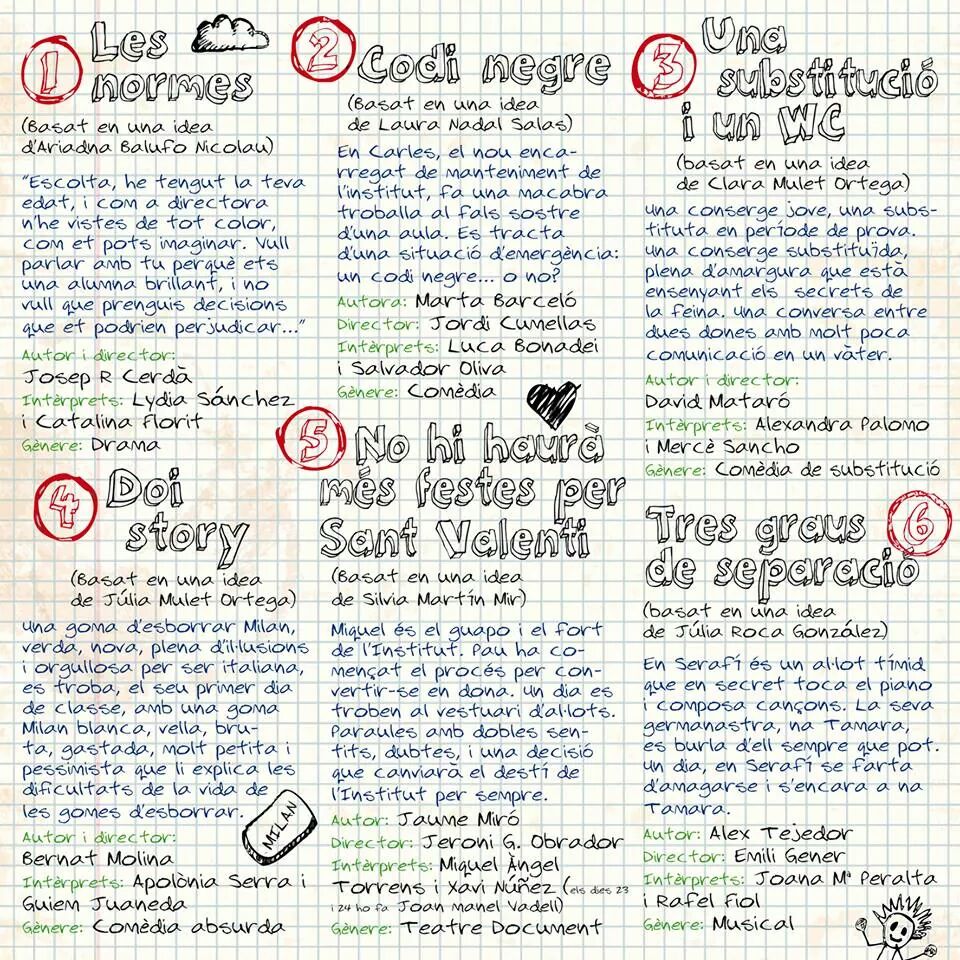 1
Les
normes
(Basat en una idea
d'Ariadna Balufo Nicolau)
"Escolta, he tengut la teva
edat, i com a directora
n'he vistes de tot color,
com et pots imaginar. Vull
parlar amb tu perquè ets
una alumna brillant, i no
vull que prenguis decisions
que et podrien perjudicar..."
Autor i director:
Josep R Cerdà
Intèrprets: Lydia Sánchez
i Catalina florit
Gènere: Drama
2
Codi negre
(Basat en una idea
de Laura Nadal Salas)
En Carles, el nou enca-
rregat de manteniment de
l'institut, fa una macabra
troballa al fals sostre
d'una aula. Es tracta
d'una situació d'emergència:
un codi negre... o no?
Autora: Marta Barceló
Director: Jordi Cumellas
Intèrprets: Luca Bonadei
i Salvador Oliva
Gènere: Comèdia
3
Una
substitució
i un WC
(basat en una idea
de Clara Mulet Ortega)
una conserge jove, una subs-
tituta en període de prova.
una conserge substituïda,
plena d'amargura que està
ensenyant els secrets de
la feina. una conversa entre
dues dones amb molt poca
comunicació en un vàter.
Autor i director:
David Mataró
Intèrprets: Alexandra Palomo
i Mercè Sancho
Gènere: Comèdia de substitució
4
Doi
story
(Basat en una idea
de Júlia Mulet Ortega)
una goma d'esborrar Milan,
verda, nova, plena d'il·lusions
i orgullosa per ser italiana,
es troba, el seu primer dia
de classe, amb una goma
Milan blanca, vella, bru-
ta, gastada, molt petita i
pessimista que li explica les
dificultats de la vida de
les gomes d'esborrar.
MILAN
Autor i director:
Bernat Molina
Intèrprets: Apolònia Serra i
Guiem Juaneda
Gènere: Comèdia absurda
5
No hi haurà
més festes per
Sant Valentí
(Basat en una idea
de Silvia Martín Mir)
Miquel és el guapo i el fort
de l'Institut. Pau ha co-
mençat el procés per con-
vertir-se en dona. un dia es
troben al vestuari d'al·lots.
Paraules amb dobles sen-
tits, dubtes, i una decisió
que canviarà el destí de
l'Institut per sempre.
Autor: Jaume Miró
Director: Jeroni G. Obrador
Intèrprets: Miquel Àngel
Torrens i Xavi Núñez (els dies 23
i 24 ho fa Joan Manel Vadell)
Gènere: Teatre Document
6
Tres graus
de separació
(basat en una idea
de Júlia Roca González)
En Serafí és un al·lot tímid
que en secret toca el piano
i composa cançons. La seva
germanastra, na Tamara,
es burla d'ell sempre que pot.
un dia, en Serafí se farta
d'amagarse i s'encara a na
Tamara.
Autor: Alex Tejedor
Director: Emili Gener
Intèrprets: Joana Mª Peralta
i Rafel fiol
Gènere: Musical